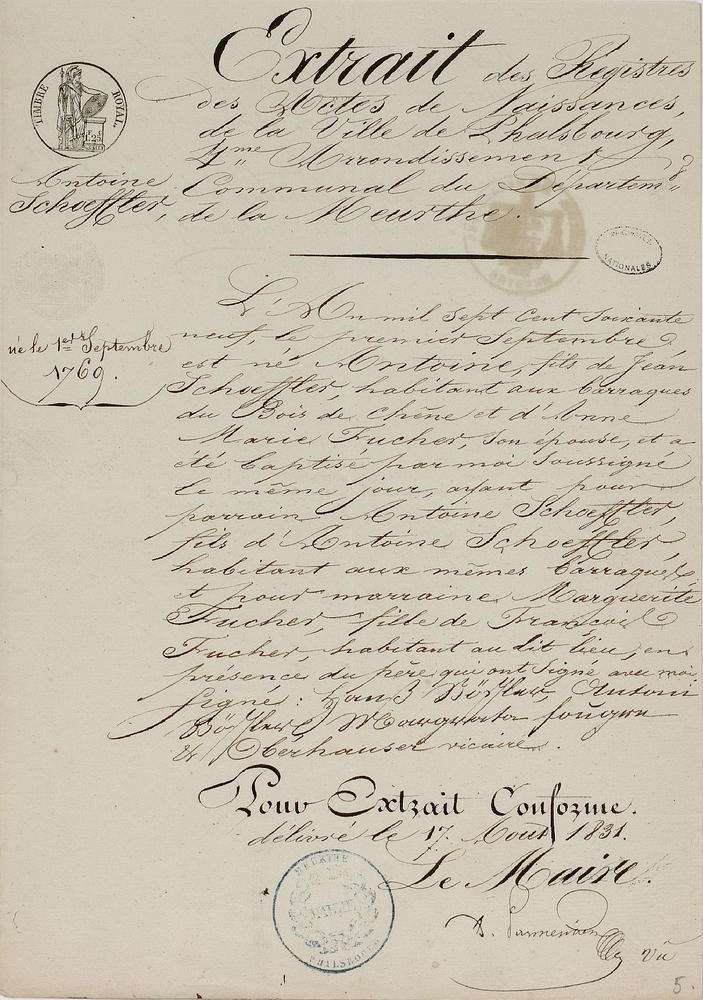 Extrait des Registres
des Actes de Naissances,
de la Ville de Phalsbourg,
4.me Arrondissement
Communal du Départem.t
de la Meurthe.
TIMBRE ROYAL.
Antoine
Schoeffler,
NATIONALES
né le 1er Septembre
1769.
L'An mil sept cent soixante
neuf, le premier Septembre
est né Antoine, fils de Jean
Schoeffler, habitant aux barraques
du Bois de Chêne et d'Anne
Marie Fucher, son épouse, et a
été baptisé par moi soussigné
le même jour, ayant pour
parrain Antoine Schoeffler,
fils d'Antoine Schoeffler,
habitant aux mêmes barraques
et pour marraine Marguerite
Fucher, fille de François
Fucher, habitant au dit lieu, en
présence du père qui ont signé avec moi
Signé: Antoni
Margreta
& Oberhauser vicaire.
Pour Extrait Conforme.
délivré le 17. Aout 1831.
Le Maire.
MEURTHE
MAIRIE
Vu
5.